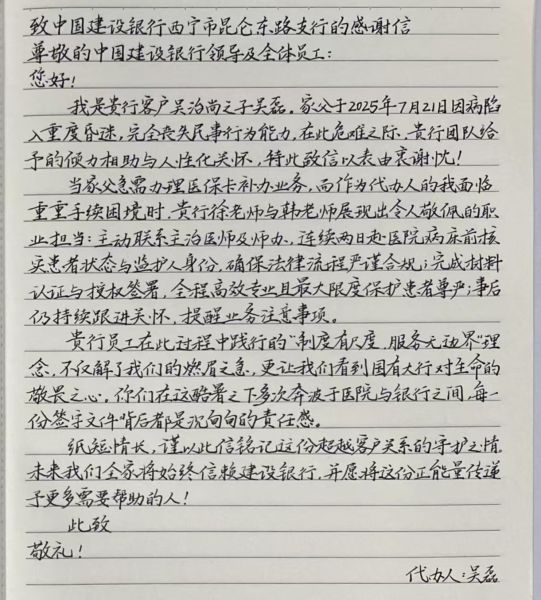 致中国建设银行西宁市昆仑东路支行的感谢信
尊敬的中国建设银行领导及全体员工：
您好！
我是贵行客户吴治尚之子吴磊。家父于2025年7月21日因病陷
入重度昏迷，完全丧失民事行为能力，在此危难之际，贵行团队给
予的倾力相助与人性化关怀，特此致信以表由衷谢忱！
当家父急需办理医保卡补办业务，而作为代办人的我面临
重重手续困境时，贵行徐老师与韩老师展现出令人敬佩的职
业担当：主动联系主治医师及师办，连续两日赴医院病床前核
实患者状态与监护人身份，确保法律流程严谨合规；完成材料
认证与授权签署，全程高效专业且最大限度保护患者尊严；事后
仍持续跟进关怀，提醒业务注意事项。
贵行员工在此过程中践行的“制度有尺度，服务无边界”理
念，不仅解了我们的燃眉之急，更让我们看到国有大行对生命的
敬畏之心，你们在这酷暑之下多次奔波于医院与银行之间，每一
份签字文件背后都是沉甸甸的责任感。
纸短情长，谨以此信铭记这份超越客户关系的守护之情。
未来我们全家将始终信赖建设银行，并愿将这份正能量传递
予更多需要帮助的人！
此致
敬礼！
代办人：吴磊